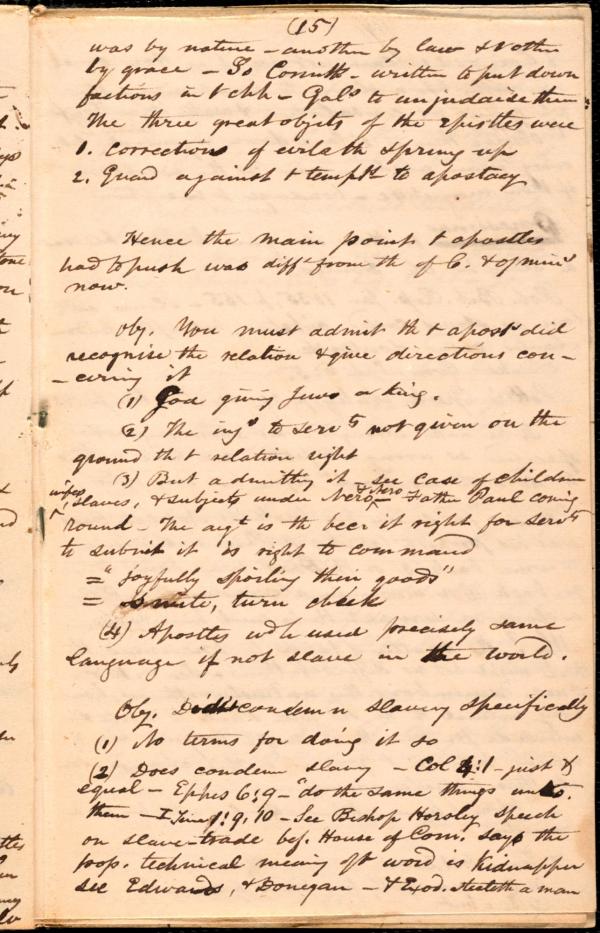 (15)
was by nature – another by law & t other
by grace – So Corinth – written to put down
factions in t chh – Gals to unjudaise them
The three great objets of the Epistles were
1. Corrections of evils th sprung up
2. Guard against t temptn to apostacy
Hence the main points t apostles
had to push was difft from th of C. & of minrs
now.
Obj. You must admit th t aposts did
recognise the relation & give directions con–
–cerning it
(1) God giving Jews a king.
(2) The injs to servts not given on the
ground th t relation right
(3) But admitting it – see case of children
wives, slaves, & subjects under Nero – Father Paul coming
round – The argt is th bec it right for servts
to submit it is right to command
= "joyfully spoiling their goods"
= smite, turn cheek
(4) Apostles wdh used precisely same
language if not slave in the world.
Obj. Didnt condemn slavery specifically
(1) No terms for doing it so
(2) Does condemn slavery – Col 4:1 – just &
equal – Ephes 6:9 – "do the same things unto
them – I Tim 1:9,10 – See Bishop Horsley speech
on slave-trade bef. House of Com. says the
prop. technical meaning oft word is kidnapper
see Edwards, & Donegan – & Exod. stealeth a man